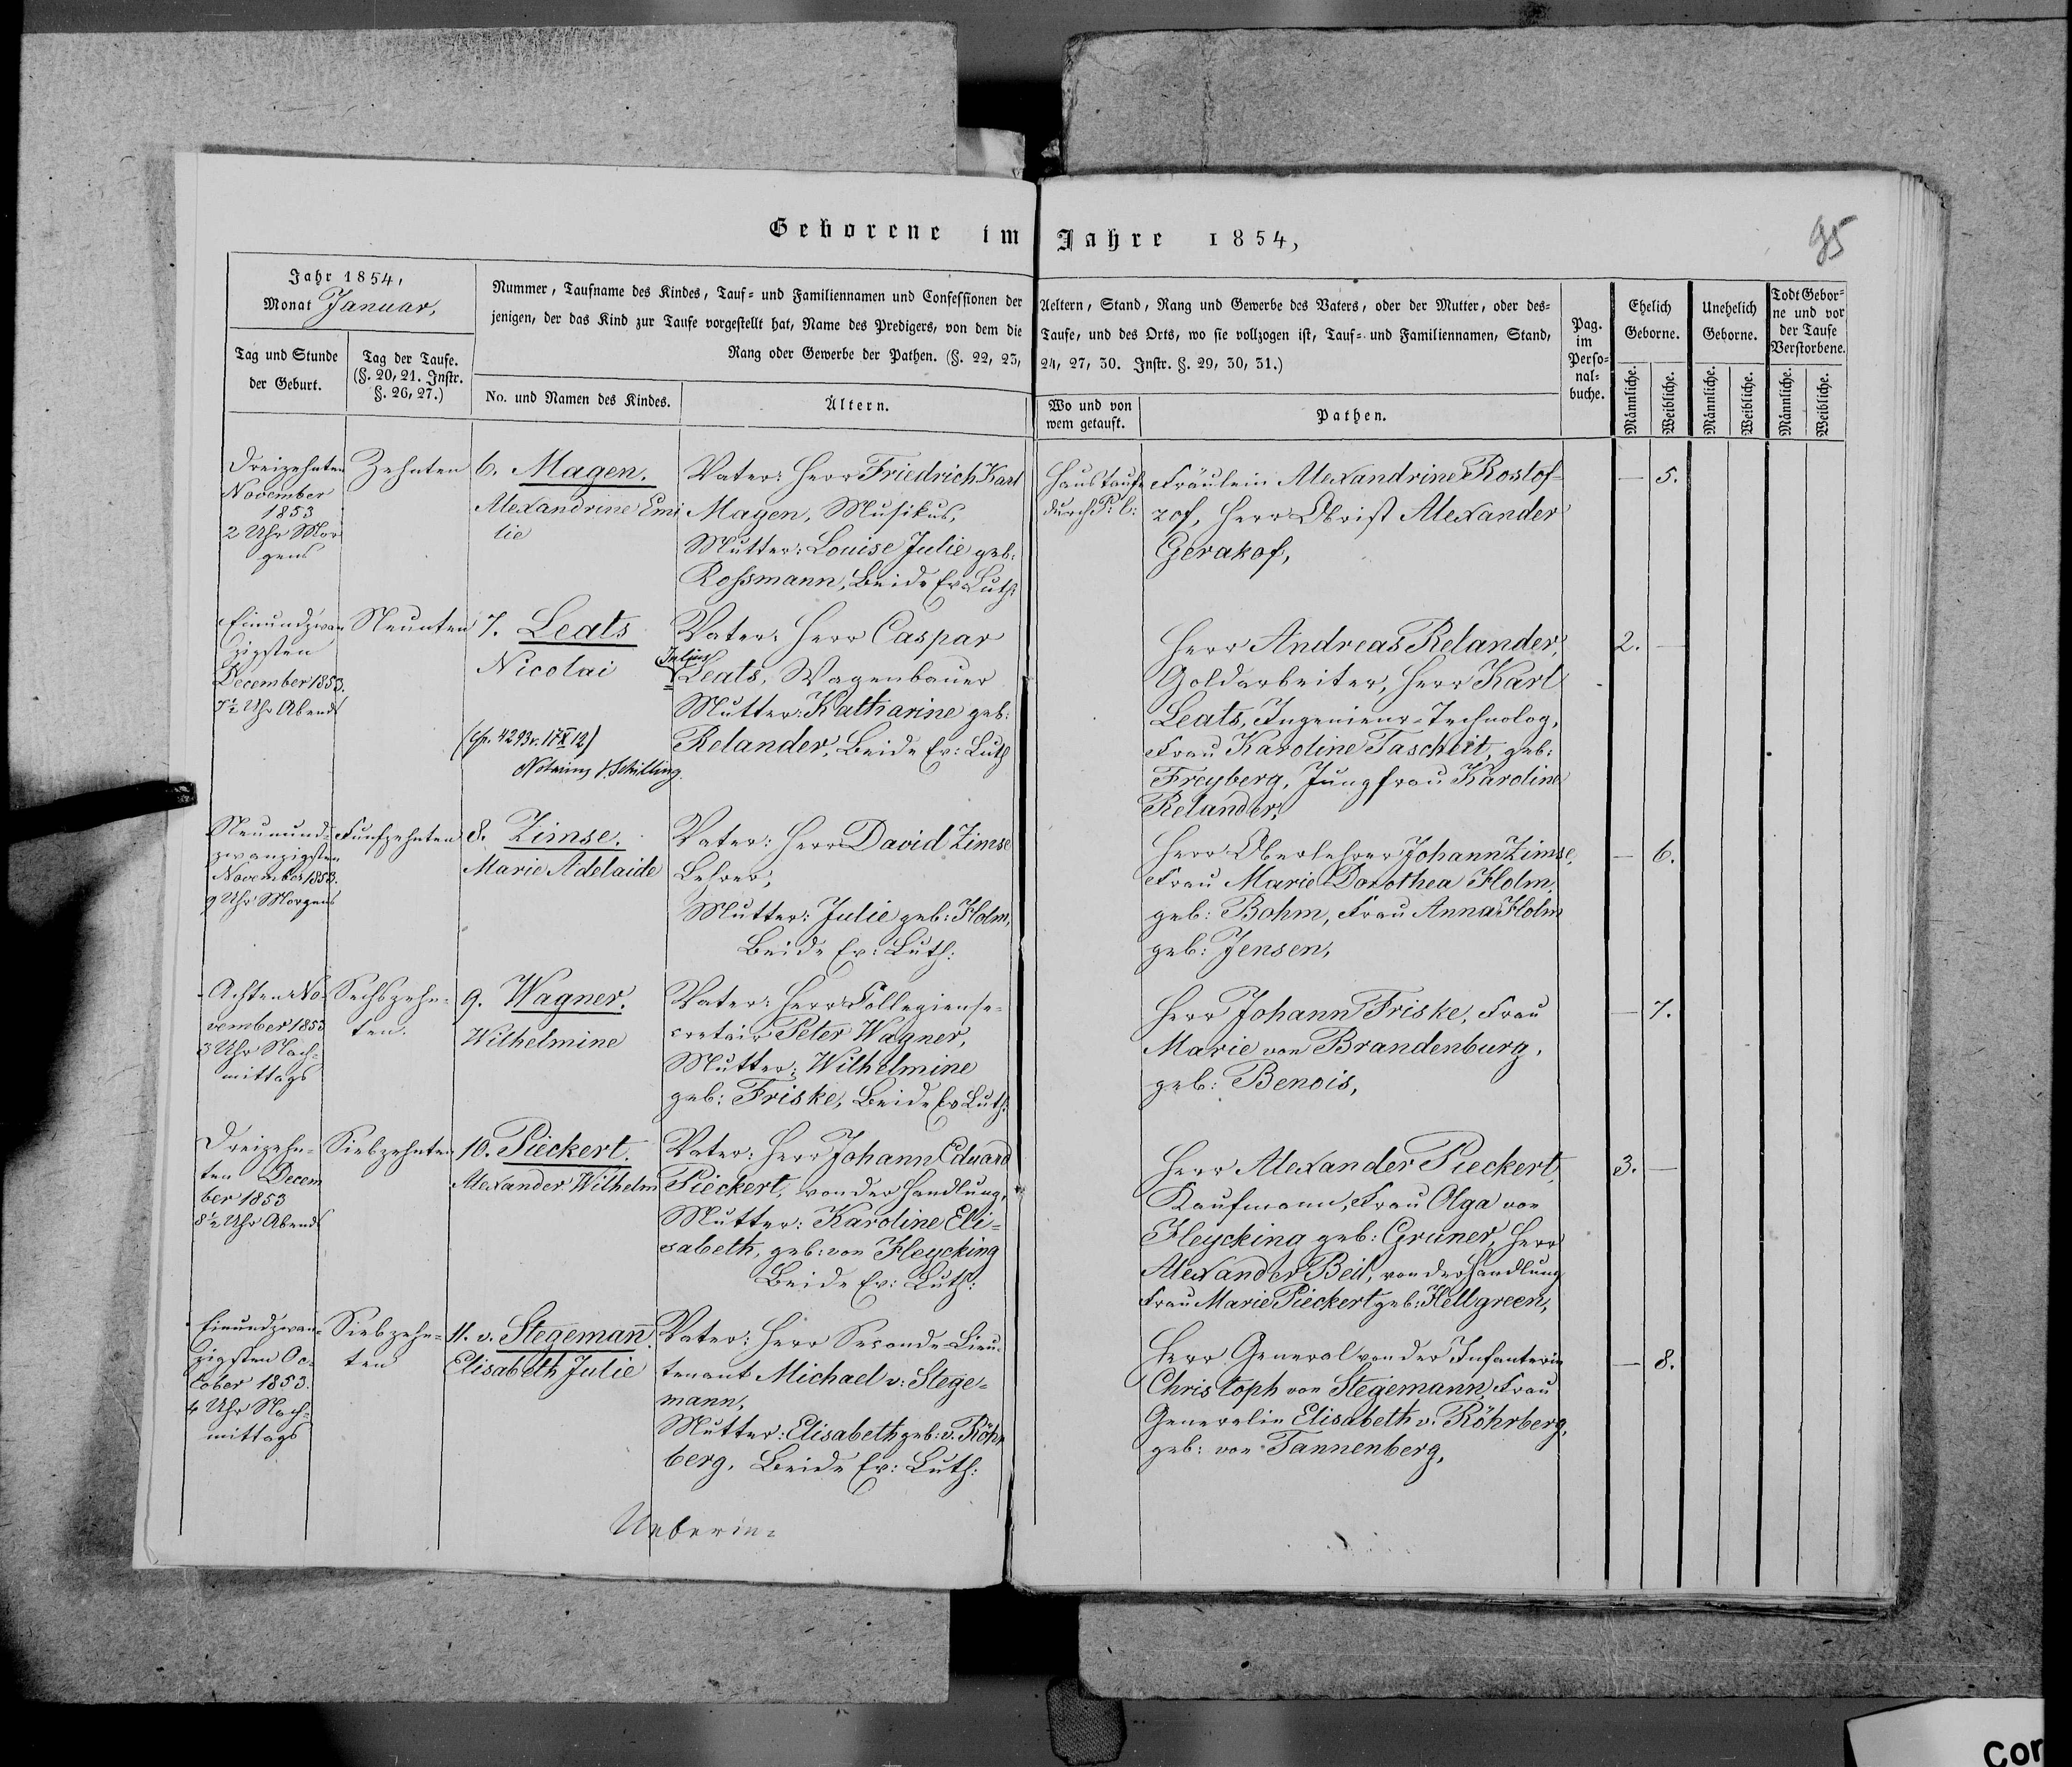 Geborene im Jahre 1854,
95
Jahr 1854,
Monat Januar,
Tag und Stunde
der Geburt.
Tag der Taufe.
(§. 20, 21. Instr.
§. 26, 27.)
Nummer, Taufname des Kindes, Tauf- und Familiennamen und Confessionen der Aeltern, Stand, Rang und Gewerbe des Vaters, oder der Mutter, oder des-
jenigen, der das Kind zur Taufe vorgestellt hat, Name des Predigers, von dem die Taufe, und des Orts, wo sie vollzogen ist, Tauf- und Familiennamen, Stand,
Rang oder Gewerbe der Pathen. (§. 22, 23, 24, 27, 30. Instr. §. 29, 30, 31.)
No. und Namen des Kindes.
Ältern.
Wo und von
wem getauft.
Pathen.
Pag.
im
Perso-
nal-
buche.
Ehelich
Geborne.
Unehelich
Geborne.
Todt Gebor-
ne und vor
der Taufe
Verstorbene.
Männliche.
Weibliche.
Männliche.
Weibliche.
Männliche.
Weibliche.
Dreizehnten
November
1853
2 Uhr Mor
gens
Zehnten
6. Magen.
Alexandrine Emi
lie
Vater: Herr Friedrich Karl
Magen, Musikus,
Mutter: Louise Julie geb:
Rossmann, Beide Ev: Luth:
Haustaufe
durch P: C:
Fräulein Alexandrine Rostof-
zof, Herr Obrist Alexander
Gerakof,
— 5.
Einundzwan
zigsten
December 1853.
7½ Uhr Abends
Neunten
7. Leats
Nicolai
(cfr. 4293 v. 11/X 12)
Notarius V. Schilling.
Vater: Herr Caspar
Julius
Leats, Wagenbauer
Mutter: Katharine geb:
Relander, Beide Ev: Luth
Herr Andreas Relander,
Goldarbeiter, Herr Karl
Leats, Ingenieur-Technolog,
Frau Karoline Tascheit, geb:
Freyberg, Jungfrau Karoline
Relander,
2. —
Neunund-
zwanzigsten
November 1853.
9 Uhr Morgens
Funfzehnten
8. Zimse.
Marie Adelaide
Vater: Herr David Zimse
Lehrer,
Mutter: Julie geb: Holm,
Beide Ev: Luth:
Herr Oberlehrer Johann Zimse,
Frau Marie Dorothea Holm,
geb: Bohm, Frau Anna Holm
geb: Jensen,
— 6.
Achten No-
vember 1853
3 Uhr Nach-
mittags
Sechszehn-
ten.
9. Wagner.
Wilhelmine
Vater: Herr Collegiense-
cretair Peter Wagner,
Mutter: Wilhelmine
geb: Friske, Beide Ev Luth:
Herr Johann Friske, Frau
Marie von Brandenburg,
geb: Benois,
— 7.
Dreizehn-
ten Decem
ber 1853
8½ Uhr Abends
Siebzehnten
10. Pieckert.
Alexander Wilhelm
Vater: Herr Johann Eduard
Pieckert, von der Handlung,
Mutter: Karoline Eli-
sabeth, geb: von Heycking
Beide Ev: Luth:
Herr Alexander Pieckert,
Kaufmann, Frau Olga von
Heycking geb: Gruner, Herr
Alexander Beil, von der Handlung
Frau Marie Pieckert geb: Hellgreen,
3. —
Einundzwan-
zigsten Oc-
tober 1853.
4 Uhr Nach-
mittags
Siebzehn-
ten
11. v. Stegemann.
Elisabeth Julie
Vater: Herr Seconde-Lieu-
tenant Michael v: Stege-
mann,
Mutter: Elisabeth geb: v. Röhr
berg. Beide Ev: Luth:
Herr General von der Infanterie
Christoph von Stegemann, Frau
Generalin Elisabeth v. Röhrberg,
geb: von Tannenberg,
— 8.
Cor